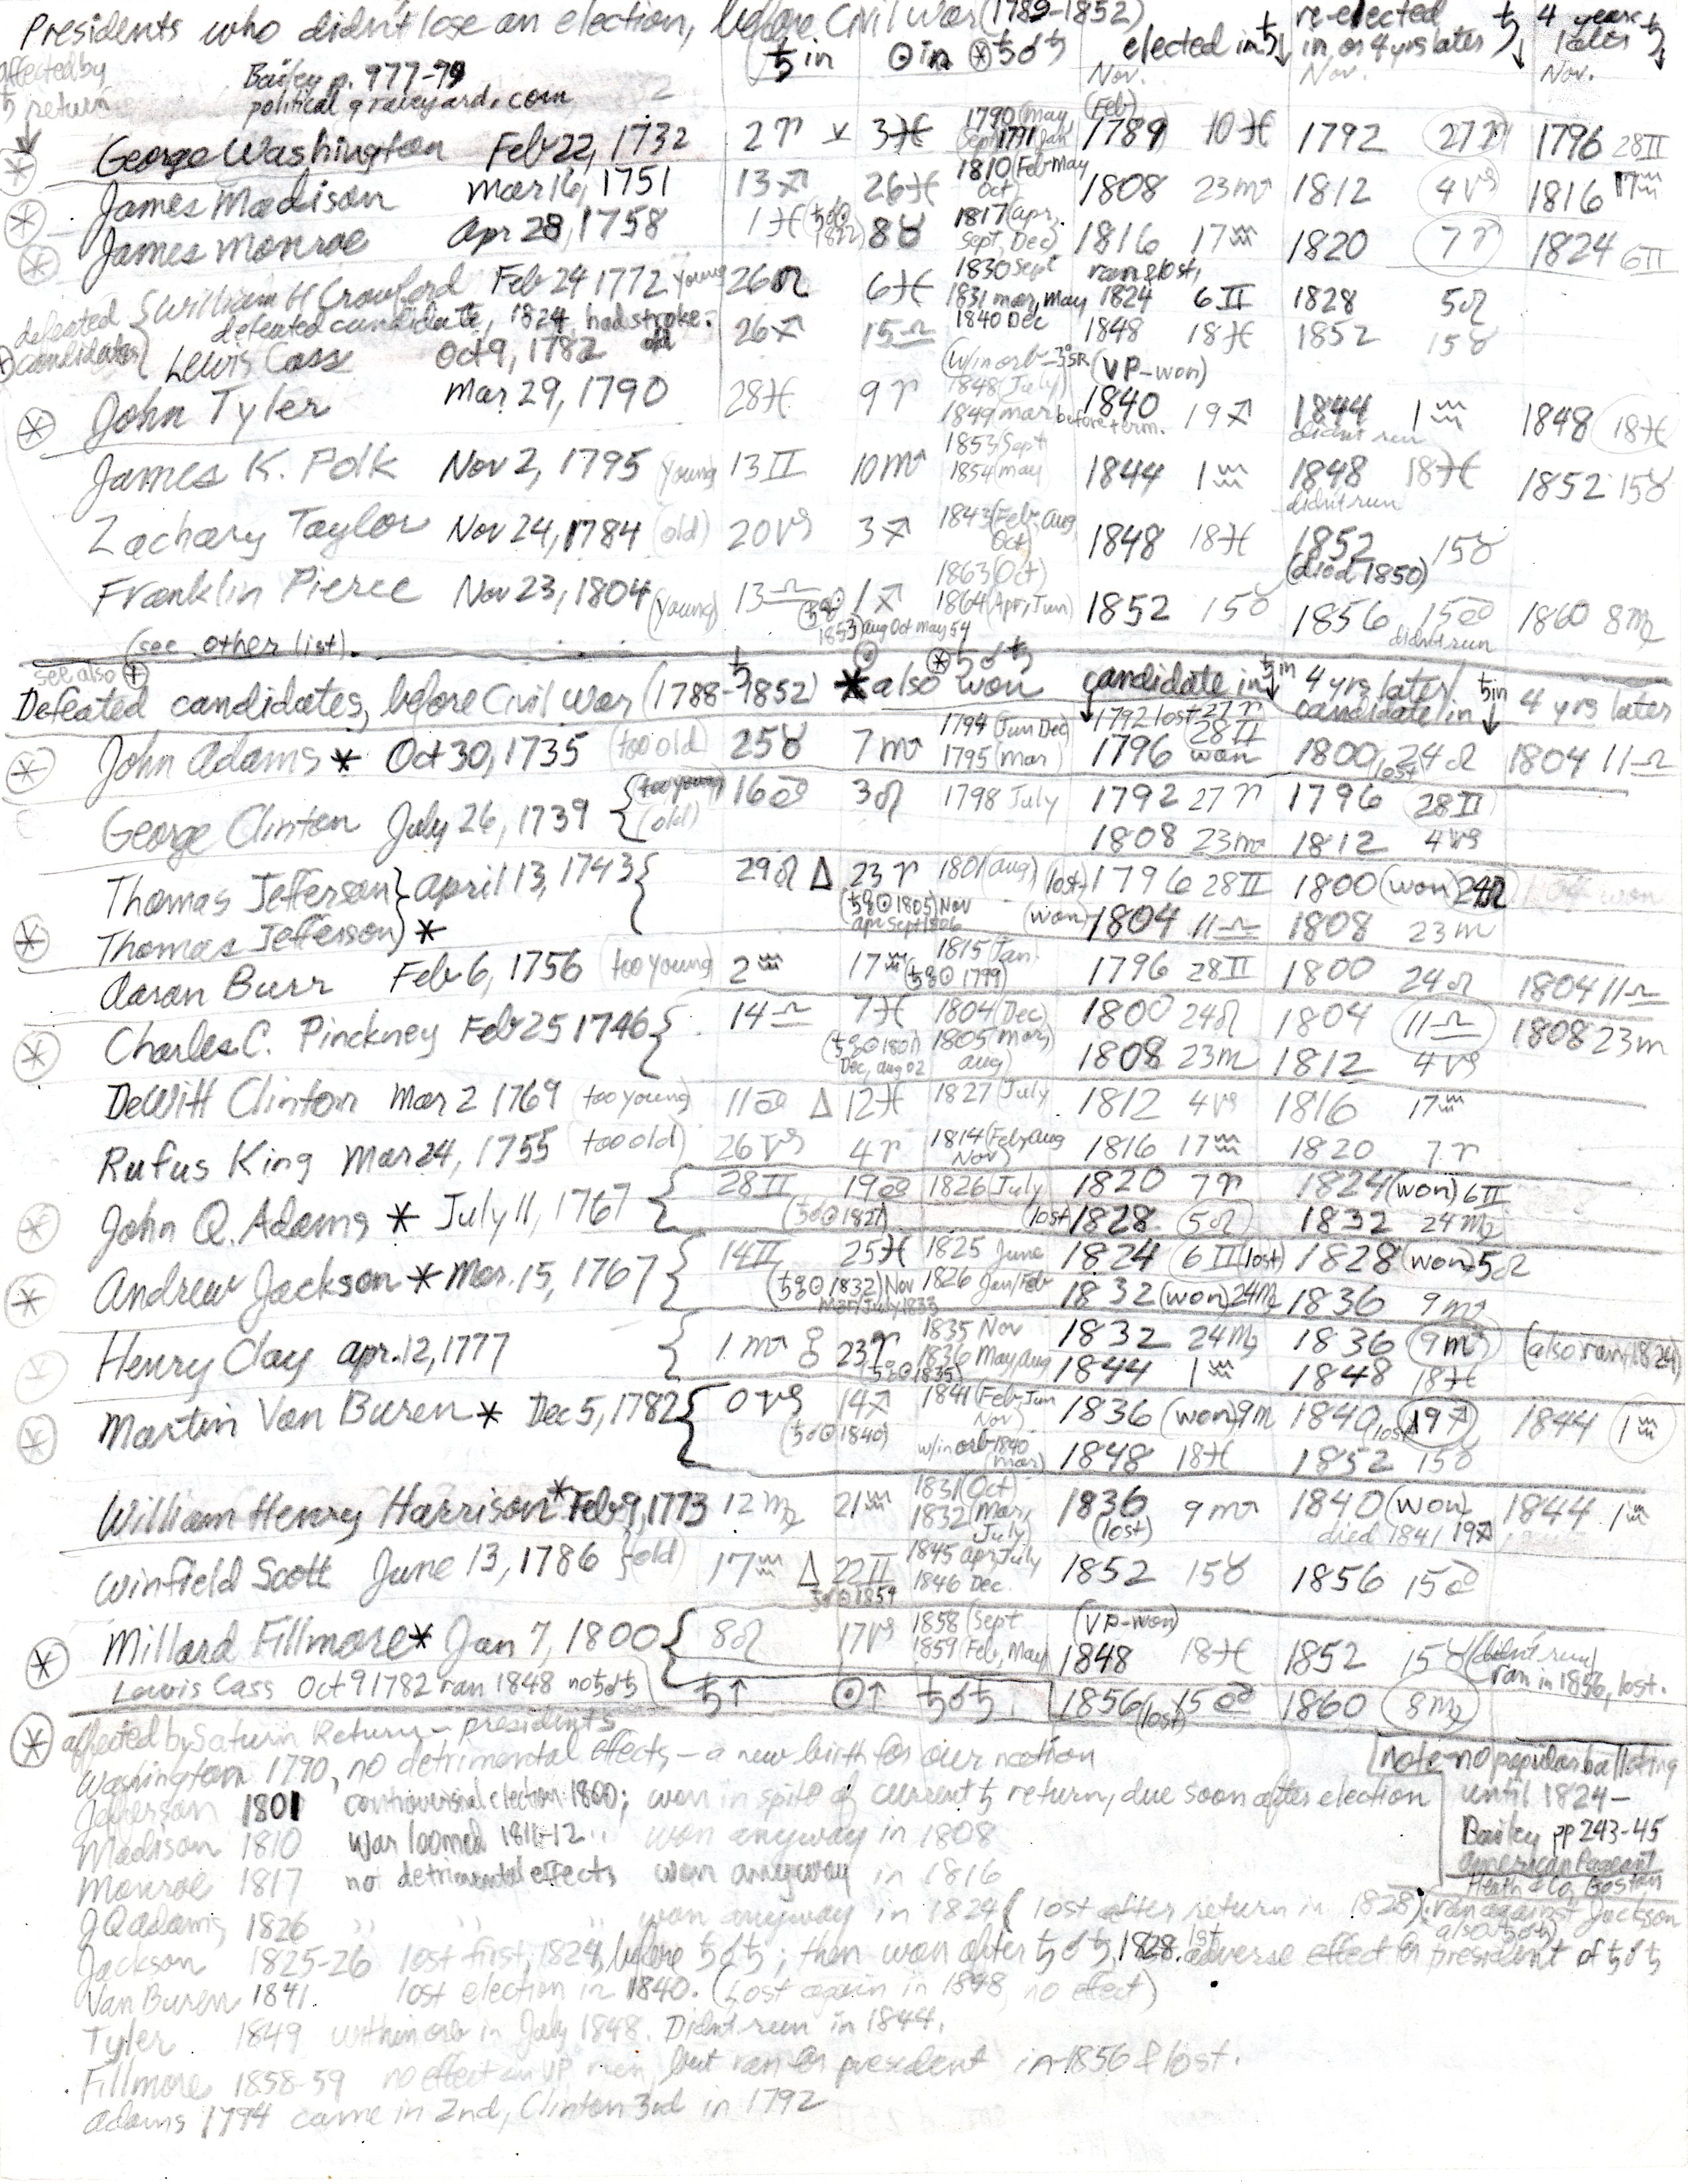 Presidents who didn't lose an election, before Civil War (1789-1852)
♄ in ☉ in ⊛ ♄☌♄ elected in ♄↓ re-elected in or 4 yrs later ♄↓ 4 years later ♄↓
affected by ♄ return ↓
Bailey p. 977-79
politicalgraveyard.com
Nov. Nov. Nov.
⊛ George Washington Feb 22, 1732 2♈ ⚺ 3♓ 1790 (May, Sept) 1791 Jan (Feb) 1789 10♓ 1792 27♈ 1796 28♊
⊛ James Madison Mar 16, 1751 13♐ 26♓ 1810 (Feb May Oct) 1808 23♏ 1812 4♑ 1816 17♒
⊛ James Monroe Apr 28, 1758 1♓ (♄☌☉ 1822) 8♉ 1817 (Apr, Sept, Dec) 1816 17♒ 1820 7♈ 1824 6♊
defeated candidates { William H Crawford Feb 24 1772 young 26♌ 6♓ 1830 Sept 1831 Mar, May ran & lost, 1824 6♊ 1828 5♌
defeated candidate, 1824, had stroke
Lewis Cass Oct 9, 1782 old 26♐ 15♎ 1840 Dec 1848 18♓ 1852 15♉
⊛ John Tyler Mar 29, 1790 28♓ 9♈ (w/in orb -3° SR 1848 (July) 1849 Mar before term. (VP-won) 1840 19♐ 1844 1♒ didn't run 1848 18♓
James K. Polk Nov 2, 1795 (young) 13♊ 10♏ 1853 (Sept 1854 (May 1844 1♒ 1848 18♓ didn't run 1852 15♉
Zachary Taylor Nov 24, 1784 (old) 20♑ 3♐ 1843 (Feb, Aug, Oct) 1848 18♓ 1852 15♉ (died 1850)
Franklin Pierce Nov 23, 1804 (young) 13♎ 1♐ 1863 (Oct) 1864 (Apr, Jun) 1852 15♉ 1856 15♋ didn't run 1860 8♍
(see other list). 1853 Aug Oct May 54
see also ⊕
Defeated candidates, before Civil War (1788-1852) ✱ also won ♄ ☉ ⊛ ♄☌♄ candidate in ♄ in ↓ 4 yrs later/ candidate in ♄ in ↓ 4 yrs later
⊛ John Adams ✱ Oct 30, 1735 (too old) 25♉ 7♏ 1794 (Jun Dec) 1795 (Mar) 1792 lost 27♈ 1796 won 28♊ 1800 lost 24♌ 1804 11♎
George Clinton July 26, 1739 { (too young) (old) 16♋ 3♌ 1798 July 1792 27♈ 1796 28♊
1808 23♏ 1812 4♑
Thomas Jefferson } April 13, 1743 { 29♌ △ 23♈ 1801 (Aug) (lost) 1796 28♊ 1800 (won) 24♌
⊛ Thomas Jefferson } ✱ (♄☍☉ 1805) Nov Apr Sept 1806 (won) 1804 11♎ 1808 23♏
Aaron Burr Feb 6, 1756 (too young) 2♒ 17♒ (♄☍☉ 1799) 1815 (Jan. 1796 28♊ 1800 24♌ 1804 11♎
⊛ Charles C. Pinckney Feb 25 1746 { 14♎ 7♓ 1804 (Dec) 1805 Mar, Aug) 1800 24♌ 1804 11♎ 1808 23♏
(♄☍☉ 1801 Dec, Aug 02 1808 23♏ 1812 4♑
DeWitt Clinton Mar 2 1769 (too young) 11♋ △ 12♓ 1827 (July 1812 4♑ 1816 17♒
Rufus King Mar 24, 1755 (too old) 26♑ 4♈ 1814 (Feb, Aug Nov) 1816 17♒ 1820 7♈
⊛ John Q. Adams ✱ July 11, 1767 { 28♊ 19♋ 1826 (July 1820 7♈ 1824 (won) 6♊
(♄☌☉ 1827) (lost) 1828 5♌ 1832 24♍
⊛ Andrew Jackson ✱ Mar. 15, 1767 { 14♊ 25♓ 1825 June 1826 Jan/Feb 1824 6♊ (lost) 1828 (won) 5♌
(♄☍☉ 1832) Nov Mar/July 1833 1832 (won) 24♍ 1836 9♏
Henry Clay Apr. 12, 1777 { 1♏ ☍ 23♈ 1835 Nov 1836 May Aug 1832 24♍ 1836 9♏ (also ran 1824)
(♄☍☉ 1835) 1844 1♒ 1848 18♓
⊛ Martin Van Buren ✱ Dec 5, 1782 { 0♑ 14♐ 1841 (Feb, Jun Nov) 1836 (won) 9♏ 1840 lost 19♐ 1844 1♒
(♄☌☉ 1840) w/in orb 1840 (Mar) 1848 18♓ 1852 15♉
William Henry Harrison ✱ Feb 9, 1773 12♍ 21♒ 1831 (Oct) 1832 (Mar, July) 1836 (lost) 9♏ 1840 (won) died 1841 19♐ 1844 1♒
Winfield Scott June 13, 1786 } (old) 17♒ △ 22♊ 1845 Apr, July 1846 Dec. 1852 15♉ 1856 15♋
♄☌☉ 1859
⊛ Millard Fillmore ✱ Jan 7, 1800 { 8♌ 17♑ 1858 (Sept 1859 Feb, May) (VP-won) 1848 18♓ 1852 15♉ (didn't run) ran in 1856, lost.
Lewis Cass Oct 9 1782 ran 1848 no ♄☌♄ ♄↑ ☉↑ ♄☌♄ 1856 (lost) 15♋ 1860 8♍
⊛ affected by Saturn Return - presidents
Washington 1790, no detrimental effects - a new birth for our nation
Jefferson 1801 controversial election 1800; won in spite of current ♄ return, due soon after election
Madison 1810 War loomed 1811-12 .. won anyway in 1808
Monroe 1817 no detrimental effects won anyway in 1816
JQ Adams, 1826 " " " won anyway in 1824 (lost after return in 1828), ran against Jackson also (♄☌♄)
Jackson 1825-26 lost first, 1824, before ♄☌♄; then won after ♄☌♄, 1828. 1st adverse effect for president of ♄☌♄
Van Buren 1841 lost election in 1840. (Lost again in 1848, no effect)
Tyler 1849 within orb in July 1848. Didn't run in 1844.
Fillmore 1858-59 no effect on VP run, but ran for president in 1856 & lost.
Adams 1794 came in 2nd, Clinton 3rd in 1792
Note - no popular balloting
until 1824 -
Bailey pp 243-45
American Pageant
Heath & Co, Boston